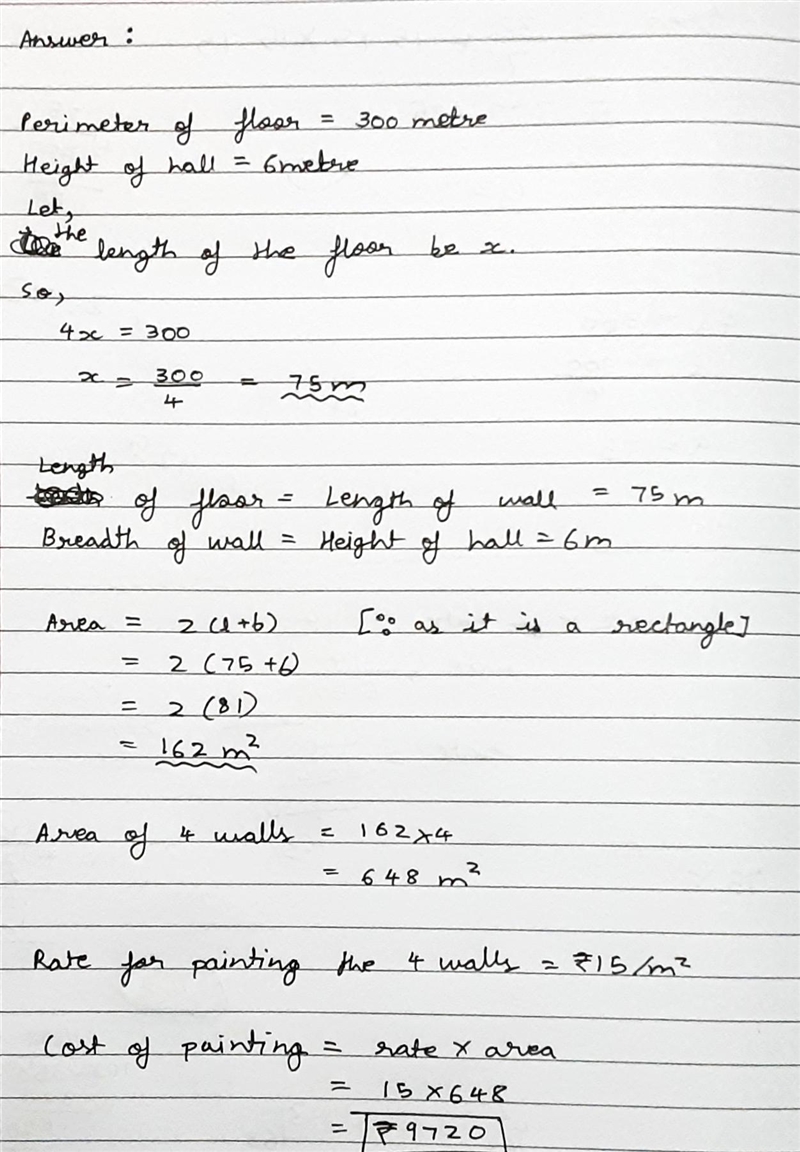 Answer :
Perimeter of floor = 300 metre
Height of hall = 6metre
Let,
the length of the floor be x.
So,
4x = 300
x = 300/4 = 75m
Length of floor = Length of wall = 75m
Breadth of wall = Height of hall = 6m
Area = 2(l+b) [∵ as it is a rectangle]
= 2 (75+6)
= 2 (81)
= 162 m²
Area of 4 walls = 162×4
= 648 m²
Rate for painting the 4 walls = ₹15/m²
Cost of painting = rate × area
= 15×648
= ₹9720